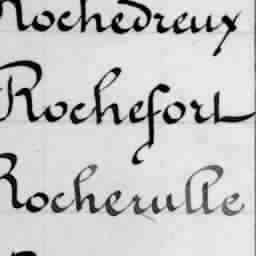 Rochedreux
Rochefort
Rocherulle